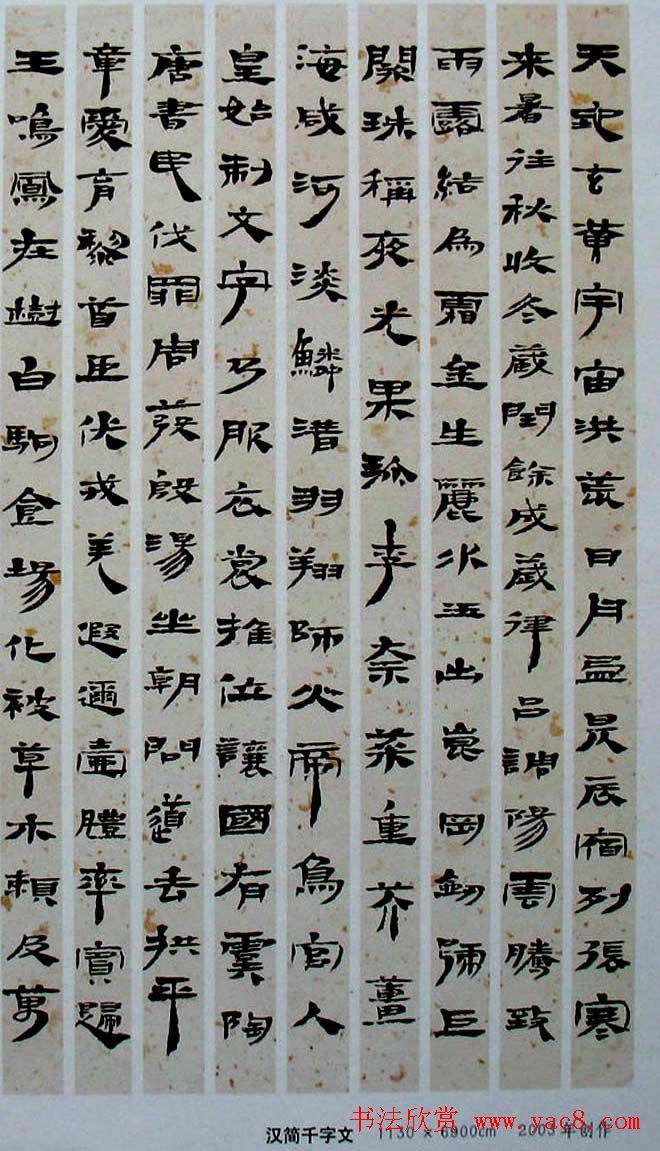 天地玄黄宇宙洪荒日月盈昃辰宿列張寒
来暑往秋收冬蔵閏餘成歲律吕調陽雲騰致
雨露結為霜金生麗水玉出崑岡劒號巨
闕珠稱夜光果珎李柰菜重芥薑
海咸河淡鱗潜羽翔師火帝鳥官人
皇始制文字乃服衣裳推位讓國有虞陶
唐書民伐罪周發殷湯坐朝問道去拱平
章愛育黎首臣伏戎羌遐邇壹體率賓歸
王鳴鳳在樹白駒食場化被草木賴及萬
汉简千字文 1130×6900cm 2003年创作
书法欣赏 www.yac8.com